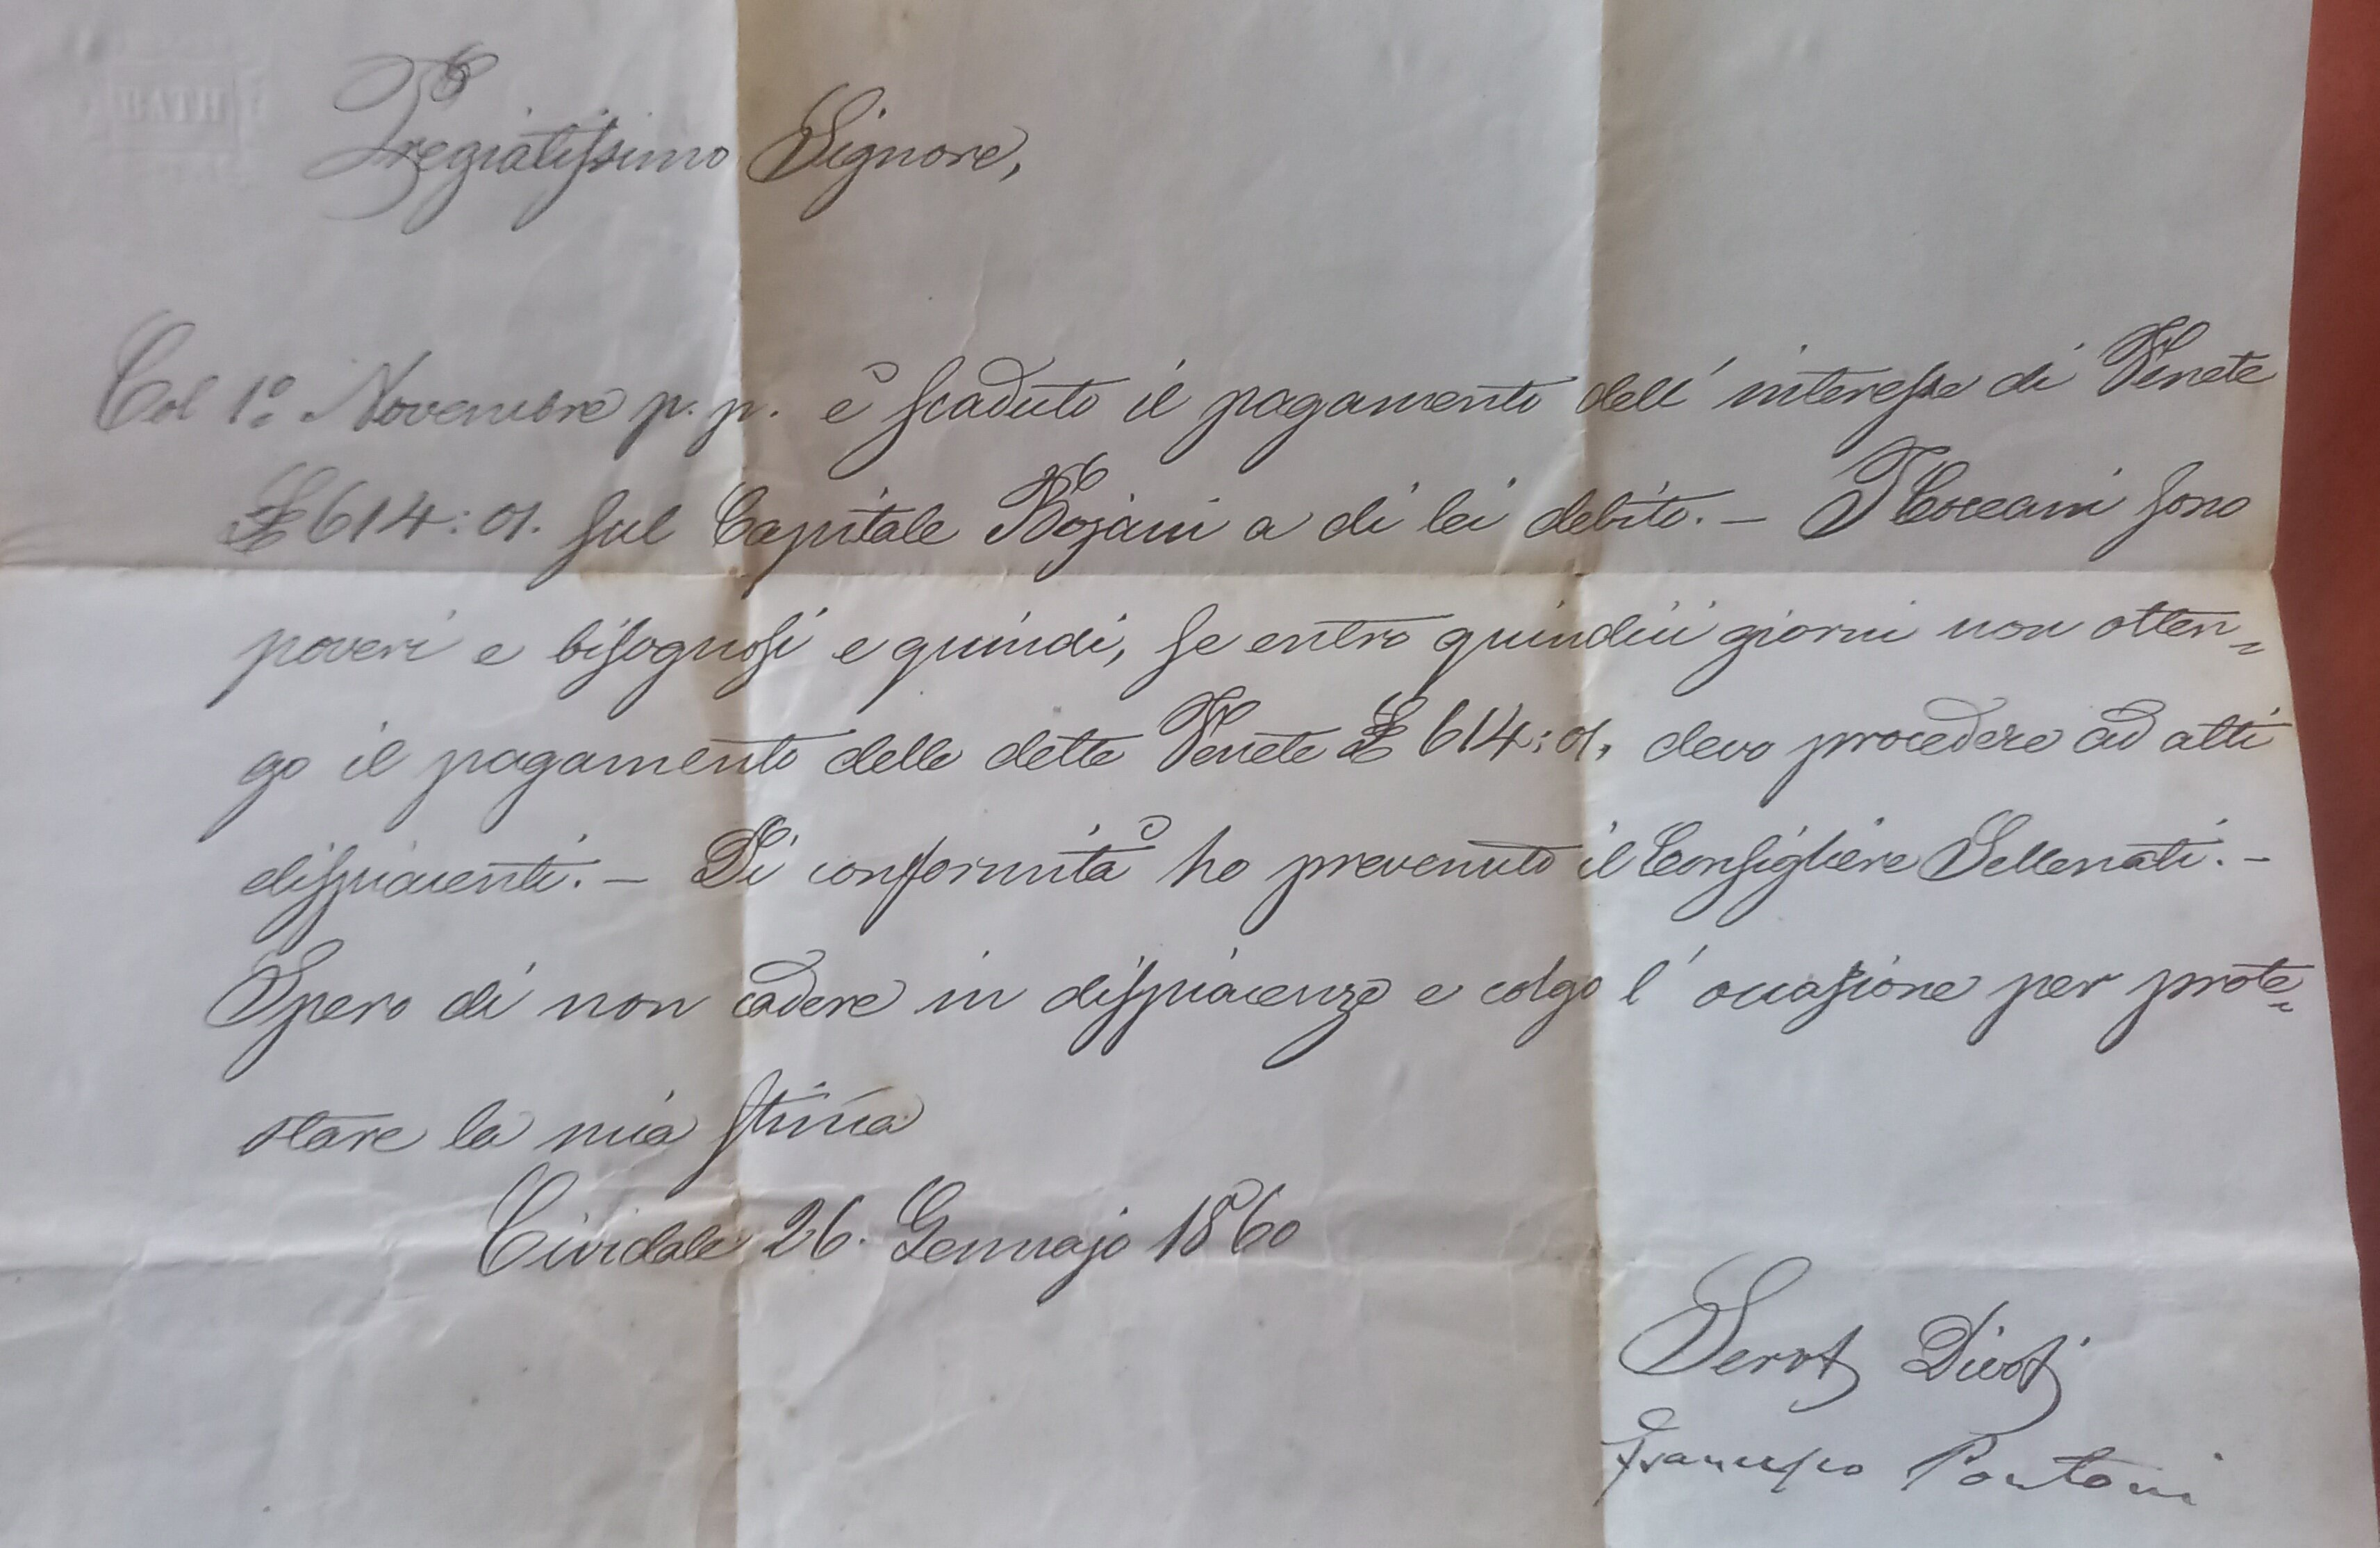 BATH
Pregiatissimo Signore,
Col 1º Novembre p. p. è scaduto il pagamento dell' interesse di Venete
£ 614:01. sul Capitale Bojani a di lei debito. – I Coceani sono
poveri e bisognosi e quindi, se entro quindici giorni non otten=
go il pagamento delle dette Venete £ 614:01, devo procedere ad atti
dispiacenti. – Di conformità ho prevenuto il Consigliere Sellenati. –
Spero di non cadere in dispiacenze e colgo l' occasione per prote=
stare la mia stima
Cividale 26. Gennajo 1860
Francesco Pontoni